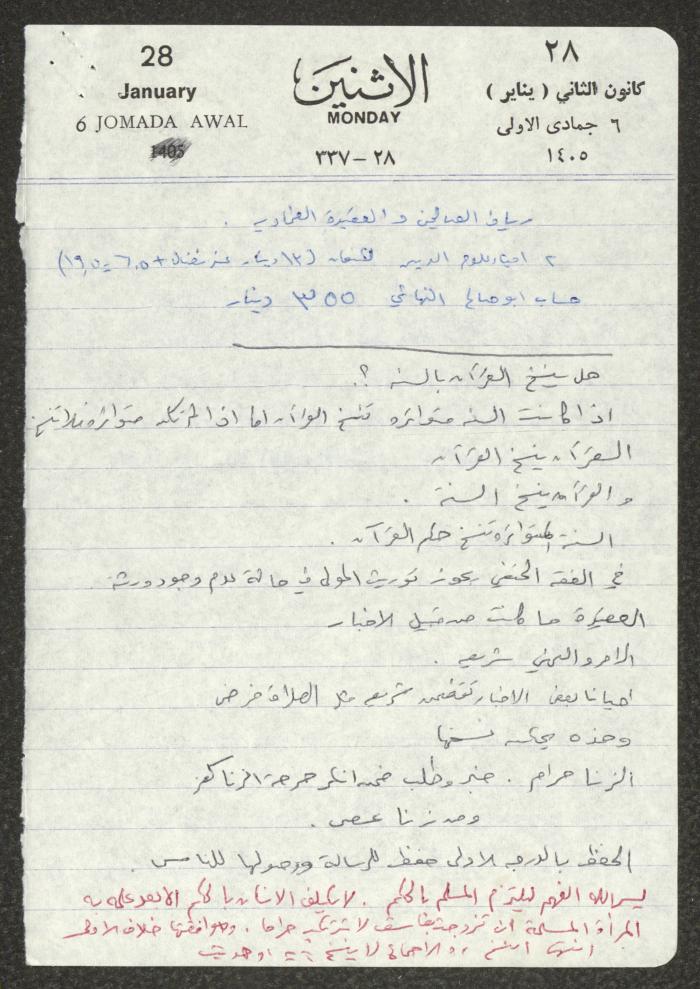 28
January
6 JOMADA AWAL
1405
الاثنين
MONDAY
٢٨-٣٣٧
٢٨
كانون الثاني ( يناير )
٦ جمادى الاولى
١٤٠٥
رياض الصالحين و العقيدة الطحاوية .
٢ احياء علوم الدين (١٣ دينار + ٦,٥ = ١٩,٥)
حساب ابو صالح ٣٥٥ دينار
هل ينسخ القرآن بالسنة ؟.
اذا كانت السنة متواتره تنسخ القرآن اما اذا لم تكن متواتره فلا تنسخ
القرآن ينسخ القرآن
و القرآن ينسخ السنة .
السنة المتواتره تنسخ حكم القرآن .
في الفقه الحنفي يجوز توريث المولى في حالة عدم وجود ورثة
العقيدة ما كانت من قبيل الاخبار
الامر والنهي شريعه .
احيانا بعض الاخبار تتضمن شريعه مثل الصلاة فرض
وهذه يمكن نسخها
الزنا حرام . خبر وطلب فمن انكر حرمة الزنا كفر
ومن زنا عصى .
الحفظ بالدرجة الاولى حفظ للرسالة ووصولها للناس .
يسر الله الفهم ليلتزم المسلم بالحكم . لا يكلف الانسان بالحكم الا بعد علمه به
المرأة المسلمة ان تزوجت بفاسق لا ترتكب حراما . وموافقتها خلاف الاولى